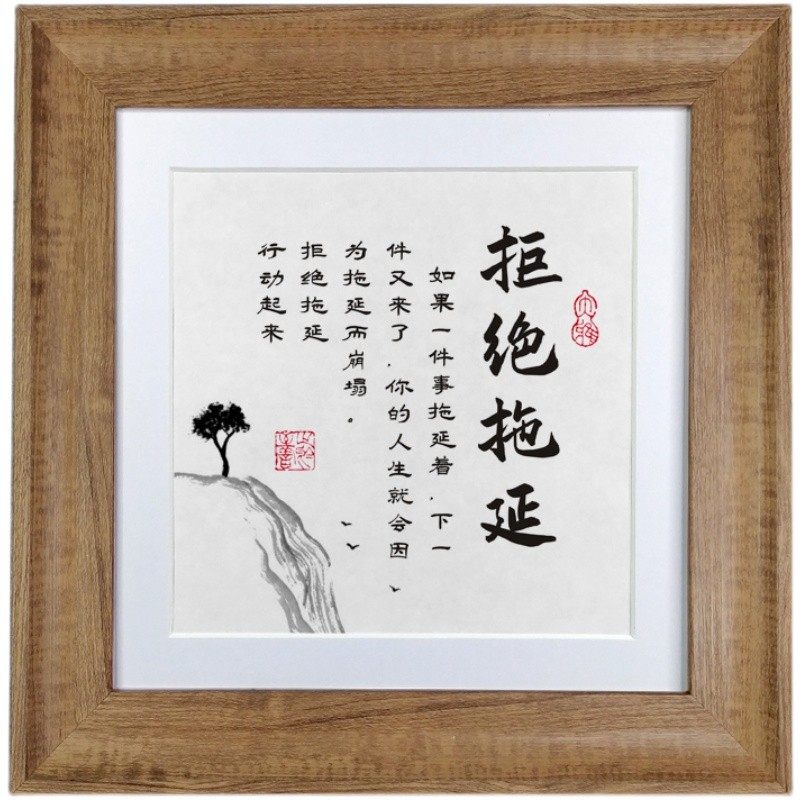 拒绝拖延
如果一件事拖延着.下一
件又来了.你的人生就会因
为拖延而崩塌。
拒绝拖延
行动起来